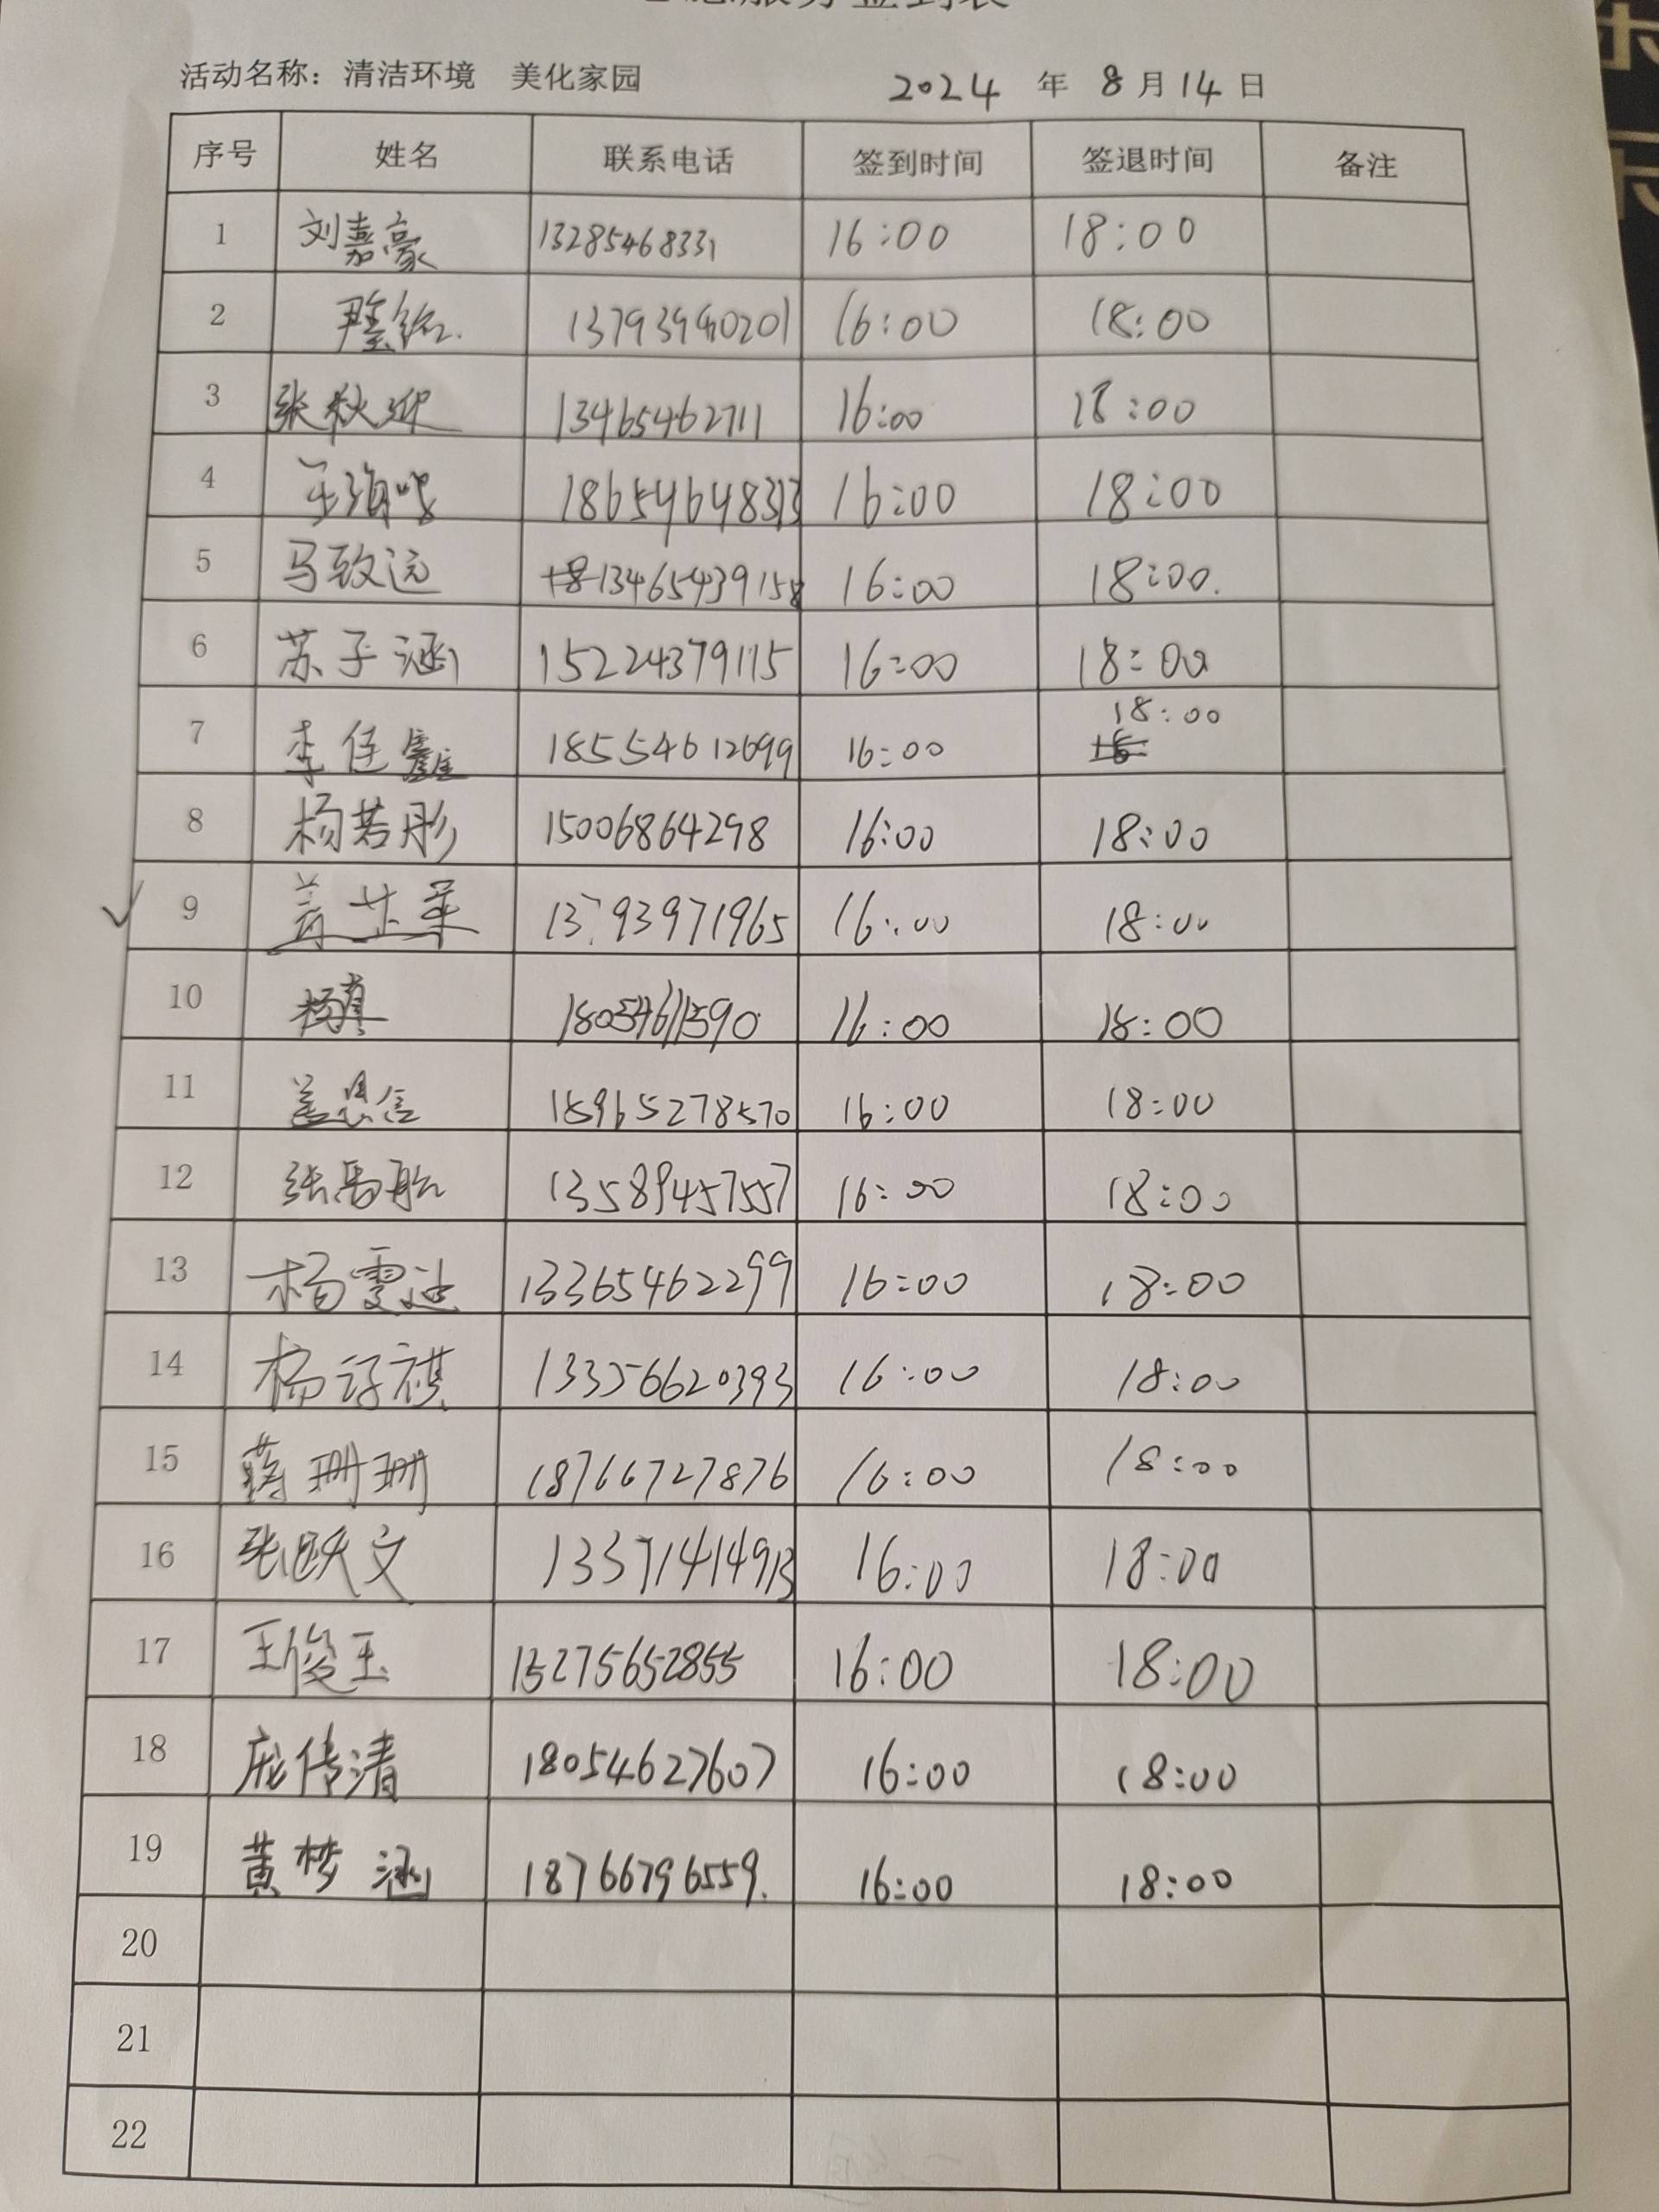 服务签到表
活动名称：清洁环境 美化家园 2024 年 8 月 14 日
序号 姓名 联系电话 签到时间 签退时间 备注
1 刘嘉豪 13285468331 16:00 18:00
2 16:00 18:00
3 张秋迎 13465462711 16:00 18:00
4 18654648313 16:00 18:00
5 马致远 13465439158 16:00 18:00.
6 苏子涵 15224379115 16:00 18:00
7 李佳鑫 18554612699 16:00 18:00
8 杨若彤 15006864298 16:00 18:00
9 13793971965 16:00 18:00
10 16:00 18:00
11 15965278570 16:00 18:00
12 13589457557 16:00 18:00
13 杨雯迪 13365462299 16:00 18:00
14 13356620393 16:00 18:00
15 蒋珊珊 18766727876 16:00 18:00
16 张跃文 13371414913 16:00 18:00
17 王俊玉 13275652855 16:00 18:00
18 庞传清 18054627607 16:00 18:00
19 黄梦涵 18766796559. 16:00 18:00
20
21
22